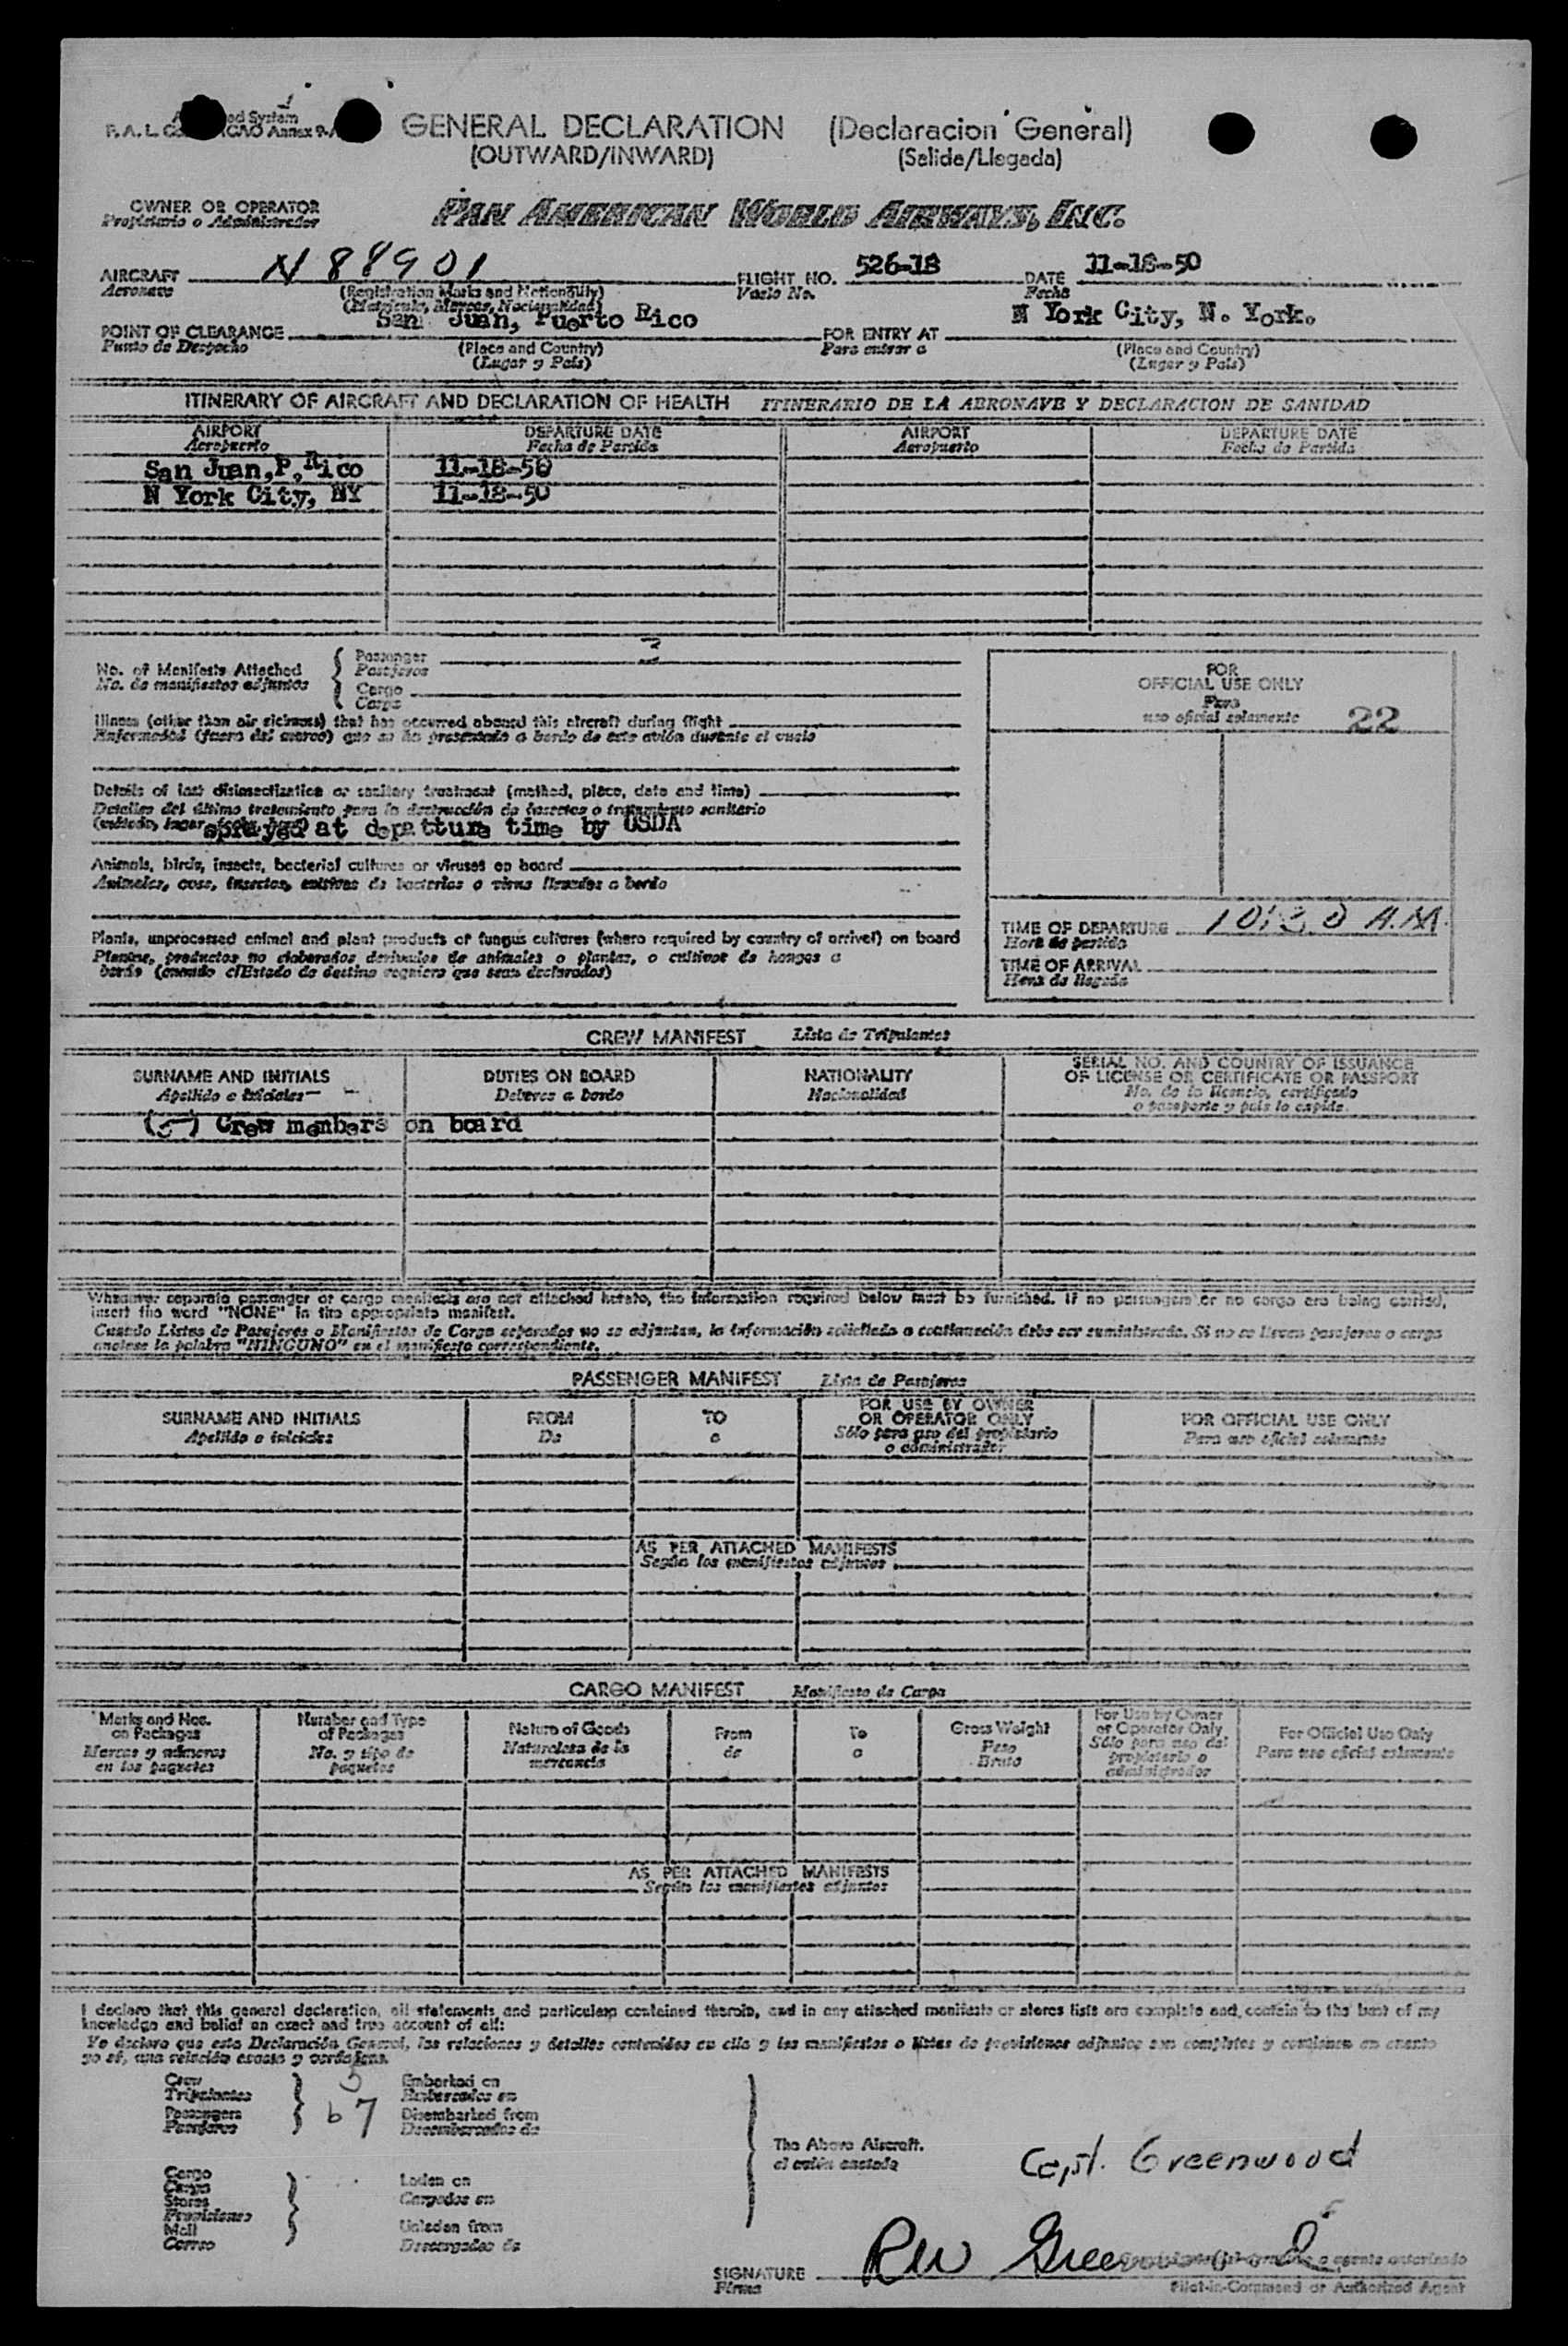 GENERAL DECLARATION (Declaracion General)
(OUTWARD/INWARD) (Salida/Llegada)
OWNER OR OPERATOR
Propietario o Administrador
PAN AMERICAN WORLD AIRWAYS, INC.
AIRCRAFT N 88901 FLIGHT NO. 526-18 DATE 11-18-50
Aeronave (Registration Marks and Nationality) Vuelo No. Fecha
(Matricula, Marcas, Nacionalidad)
POINT OF CLEARANCE San Juan, Puerto Rico FOR ENTRY AT N York City, N. York.
Punto de Despacho (Place and Country) Para entrar a (Place and Country)
(Lugar y País) (Lugar y País)
ITINERARY OF AIRCRAFT AND DECLARATION OF HEALTH ITINERARIO DE LA AERONAVE Y DECLARACION DE SANIDAD
AIRPORT DEPARTURE DATE AIRPORT DEPARTURE DATE
Aeropuerto Fecha de Partida Aeropuerto Fecha de Partida
San Juan,P,Rico 11-18-50
N York City, NY 11-18-50
No. of Manifests Attached
No. de manifiestos adjuntos
Passenger
Pasajeros
Cargo
Carga
FOR
OFFICIAL USE ONLY
Para
uso oficial solamente 22
Illness (other than air sickness) that has occurred aboard this aircraft during flight
Enfermedad (fuera del mareo) que se ha presentado a bordo de este avión durante el vuelo
Details of last disinsectization or sanitary treatment (method, place, date and time)
Detalles del último tratamiento para la destrucción de insectos o tratamiento sanitario
sprayed at depatture time by USDA
Animals, birds, insects, bacterial cultures or viruses on board
Animales, aves, insectos, cultivos de bacterias o virus llevados a bordo
Plants, unprocessed animal and plant products of fungus cultures (where required by country of arrival) on board
Plantas, productos no elaborados derivados de animales o plantas, o cultivos de hongos a
bordo (cuando el Estado de destino requiera que sean declarados)
TIME OF DEPARTURE 10:30 A.M.
Hora de partida
TIME OF ARRIVAL
Hora de llegada
CREW MANIFEST Lista de Tripulantes
SURNAME AND INITIALS DUTIES ON BOARD NATIONALITY SERIAL NO. AND COUNTRY OF ISSUANCE
OF LICENSE OR CERTIFICATE OR PASSPORT
Apellido e iniciales Deberes a bordo Nacionalidad No. de la licencia, certificado
o pasaporte y país lo expide.
(5) Crew members on board
Whenever separate passenger or cargo manifests are not attached hereto, the information required below must be furnished. If no passengers or no cargo are being carried,
insert the word "NONE" in the appropriate manifest.
Cuando Listas de Pasajeros o Manifiestos de Carga separados no se adjuntan, la información solicitada a continuación debe ser suministrada. Si no se llevan pasajeros o carga
anotese la palabra "NINGUNO" en el manifiesto correspondiente.
PASSENGER MANIFEST Lista de Pasajeros
SURNAME AND INITIALS FROM TO FOR USE BY OWNER
OR OPERATOR ONLY FOR OFFICIAL USE ONLY
Apellido e iniciales De a Sólo para uso del propietario
o administrador Para uso oficial solamente
AS PER ATTACHED MANIFESTS
Según los manifiestos adjuntos
CARGO MANIFEST Manifiesto de Carga
Marks and Nos.
on Packages
Marcas y números
en los paquetes
Number and Type
of Packages
No. y tipo de
paquetes
Nature of Goods
Naturaleza de la
mercancía
From
de
To
a
Gross Weight
Peso
Bruto
For Use by Owner
or Operator Only
Sólo para uso del
propietario o
administrador
For Official Use Only
Para uso oficial solamente
AS PER ATTACHED MANIFESTS
Según los manifiestos adjuntos
I declare that this general declaration, all statements and particulars contained therein, and in any attached manifests or stores lists are complete and contain to the best of my
knowledge and belief an exact and true account of all:
Yo declaro que esta Declaración General, las relaciones y detalles contenidos en ella y los manifiestos o listas de provisiones adjuntos son completos y contienen en cuanto
yo sé, una relación exacta y verdadera.
Crew 5 Embarked on
Tripulantes Embarcados en
Passengers 67 Disembarked from
Pasajeros Desembarcados de
The Above Aircraft.
el avión anotado
Capt. Greenwood
Cargo
Carga
Stores
Provisiones
Mail
Correo
Laden on
Cargados en
Unladen from
Descargados de
SIGNATURE RW Greenwood
Firma Pilot-in-Command or Authorized Agent